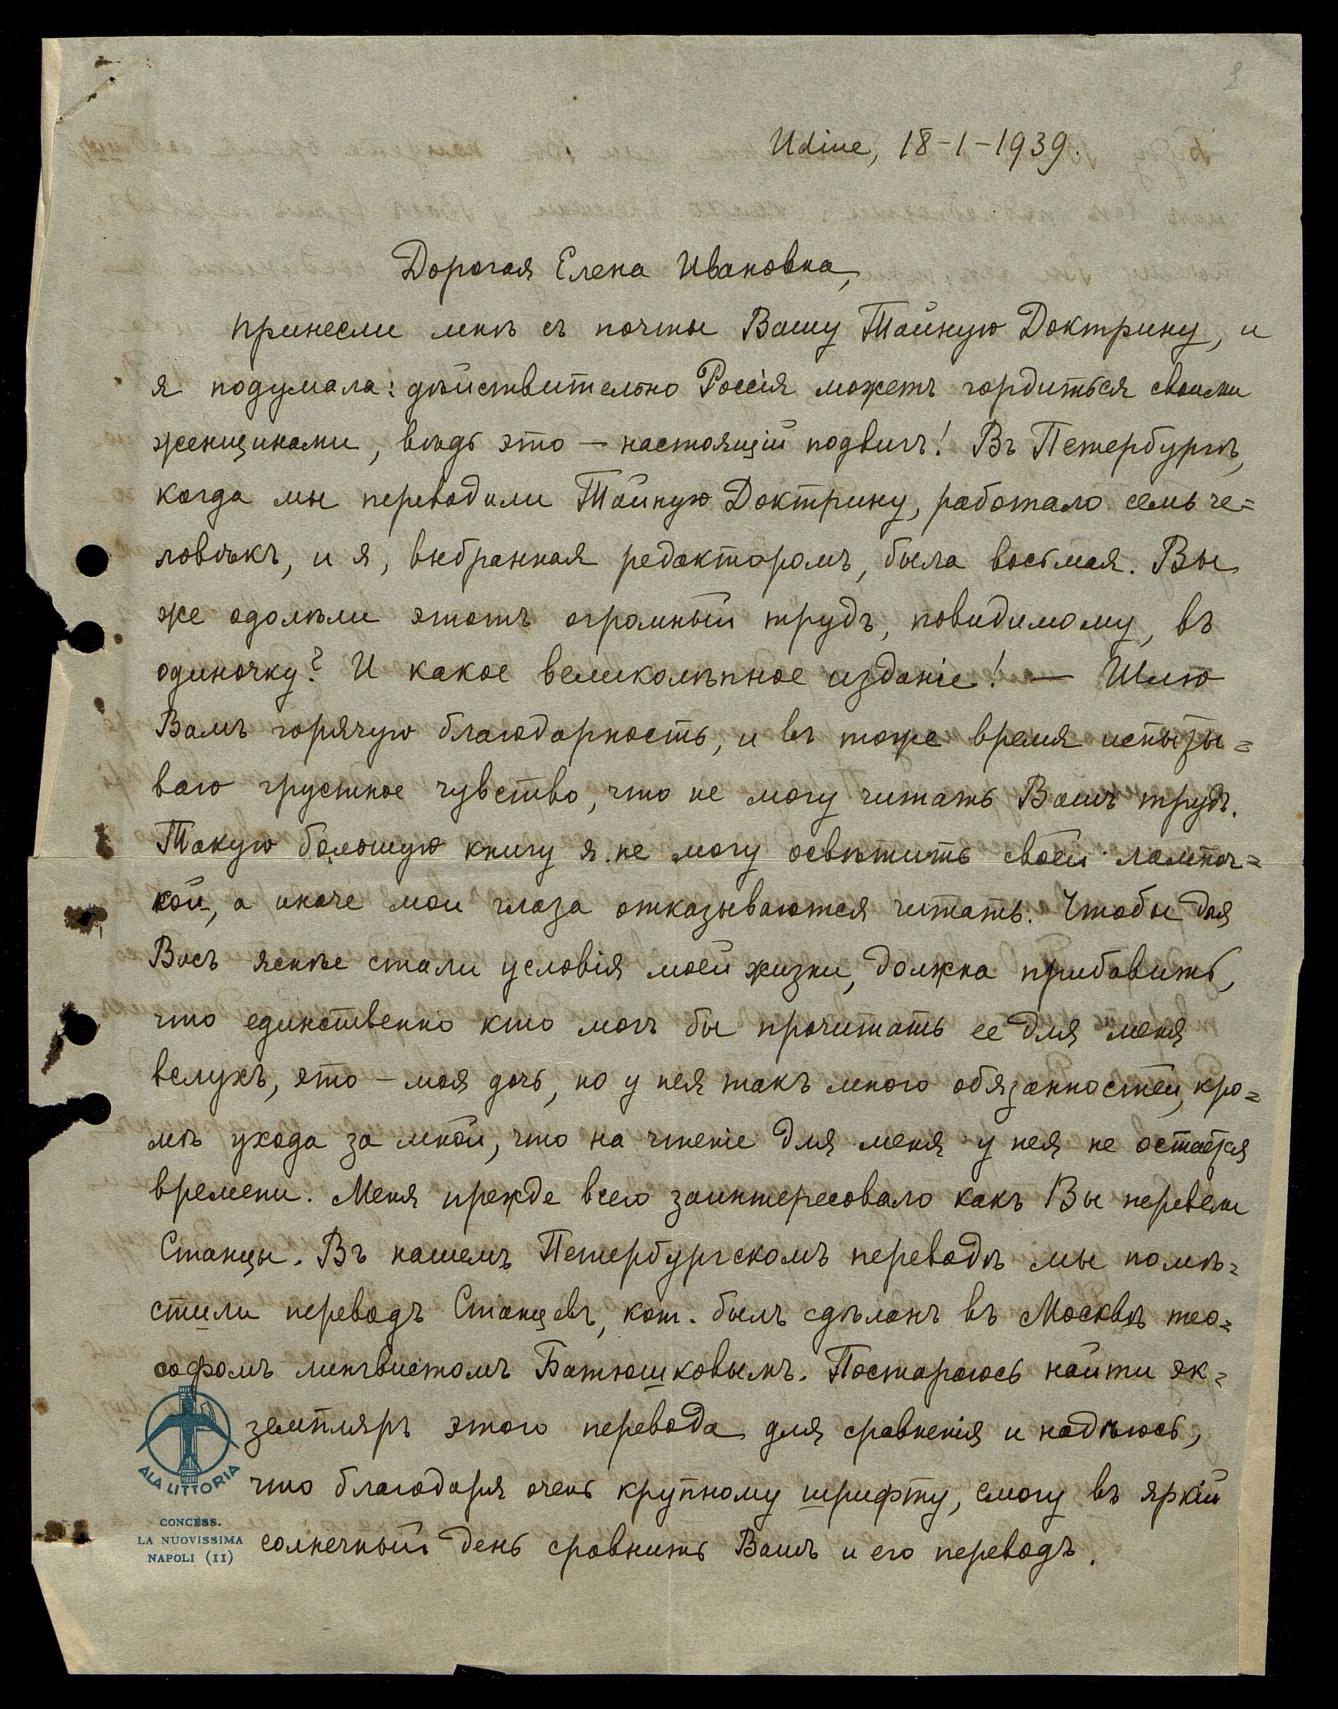 Udine, 18-1-1939.
Дорогая Елена Ивановна,
принесли мнѣ съ почты Вашу Тайную Доктрину, и
я подумала: дѣйствительно Россія можетъ гордиться своими
женщинами, вѣдь это — настоящій подвигъ! Въ Петербургѣ,
когда мы переводили Тайную Доктрину, работало семь че=
ловѣкъ, и я, выбранная редакторомъ, была восьмая. Вы
же одолѣли этотъ огромный трудъ, повидимому, въ
одиночку? И какое великолѣпное изданіе! — Шлю
Вамъ горячую благодарность, и въ тоже время испыты=
ваю грустное чувство, что не могу читать Вашъ трудъ.
Такую большую книгу я не могу освѣтить своей лампоч=
кой, а иначе мои глаза отказываются читать. Чтобы для
Васъ яснѣе стали условія моей жизни, должна прибавить,
что единственно кто могъ бы прочитать ее для меня
вслухъ, это — моя дочь, но у нея такъ много обязанностей, кро=
мѣ ухода за мной, что на чтеніе для меня у нея не остается
времени. Меня прежде всего заинтересовало какъ Вы перевели
Станцы. Въ нашемъ Петербургскомъ переводѣ мы помѣ=
стили переводъ Станцевъ, кот. былъ сдѣланъ въ Москвѣ тео=
софомъ лингвистомъ Батюшковымъ. Постараюсь найти эк=
земпляръ этого перевода для сравненія и надѣюсь,
что благодаря очень крупному шрифту, смогу въ яркій
солнечный день сравнить Вашъ и его переводъ.
ALA LITTORIA
CONCESS.
LA NUOVISSIMA
NAPOLI (11)